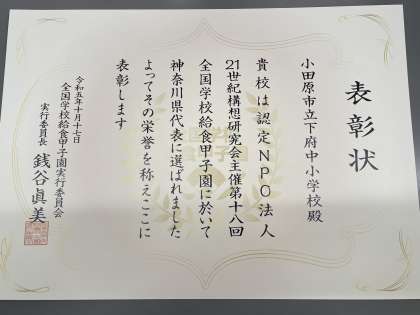 表彰状
小田原市立下府中小学校殿
貴校は認定NPO法人
21世紀構想研究会主催第十八回
全国学校給食甲子園に於いて
神奈川県代表に選ばれました
よってその栄誉を称えここに
表彰します
令和五年十月十七日
全国学校給食甲子園実行委員会
実行委員長 銭谷眞美